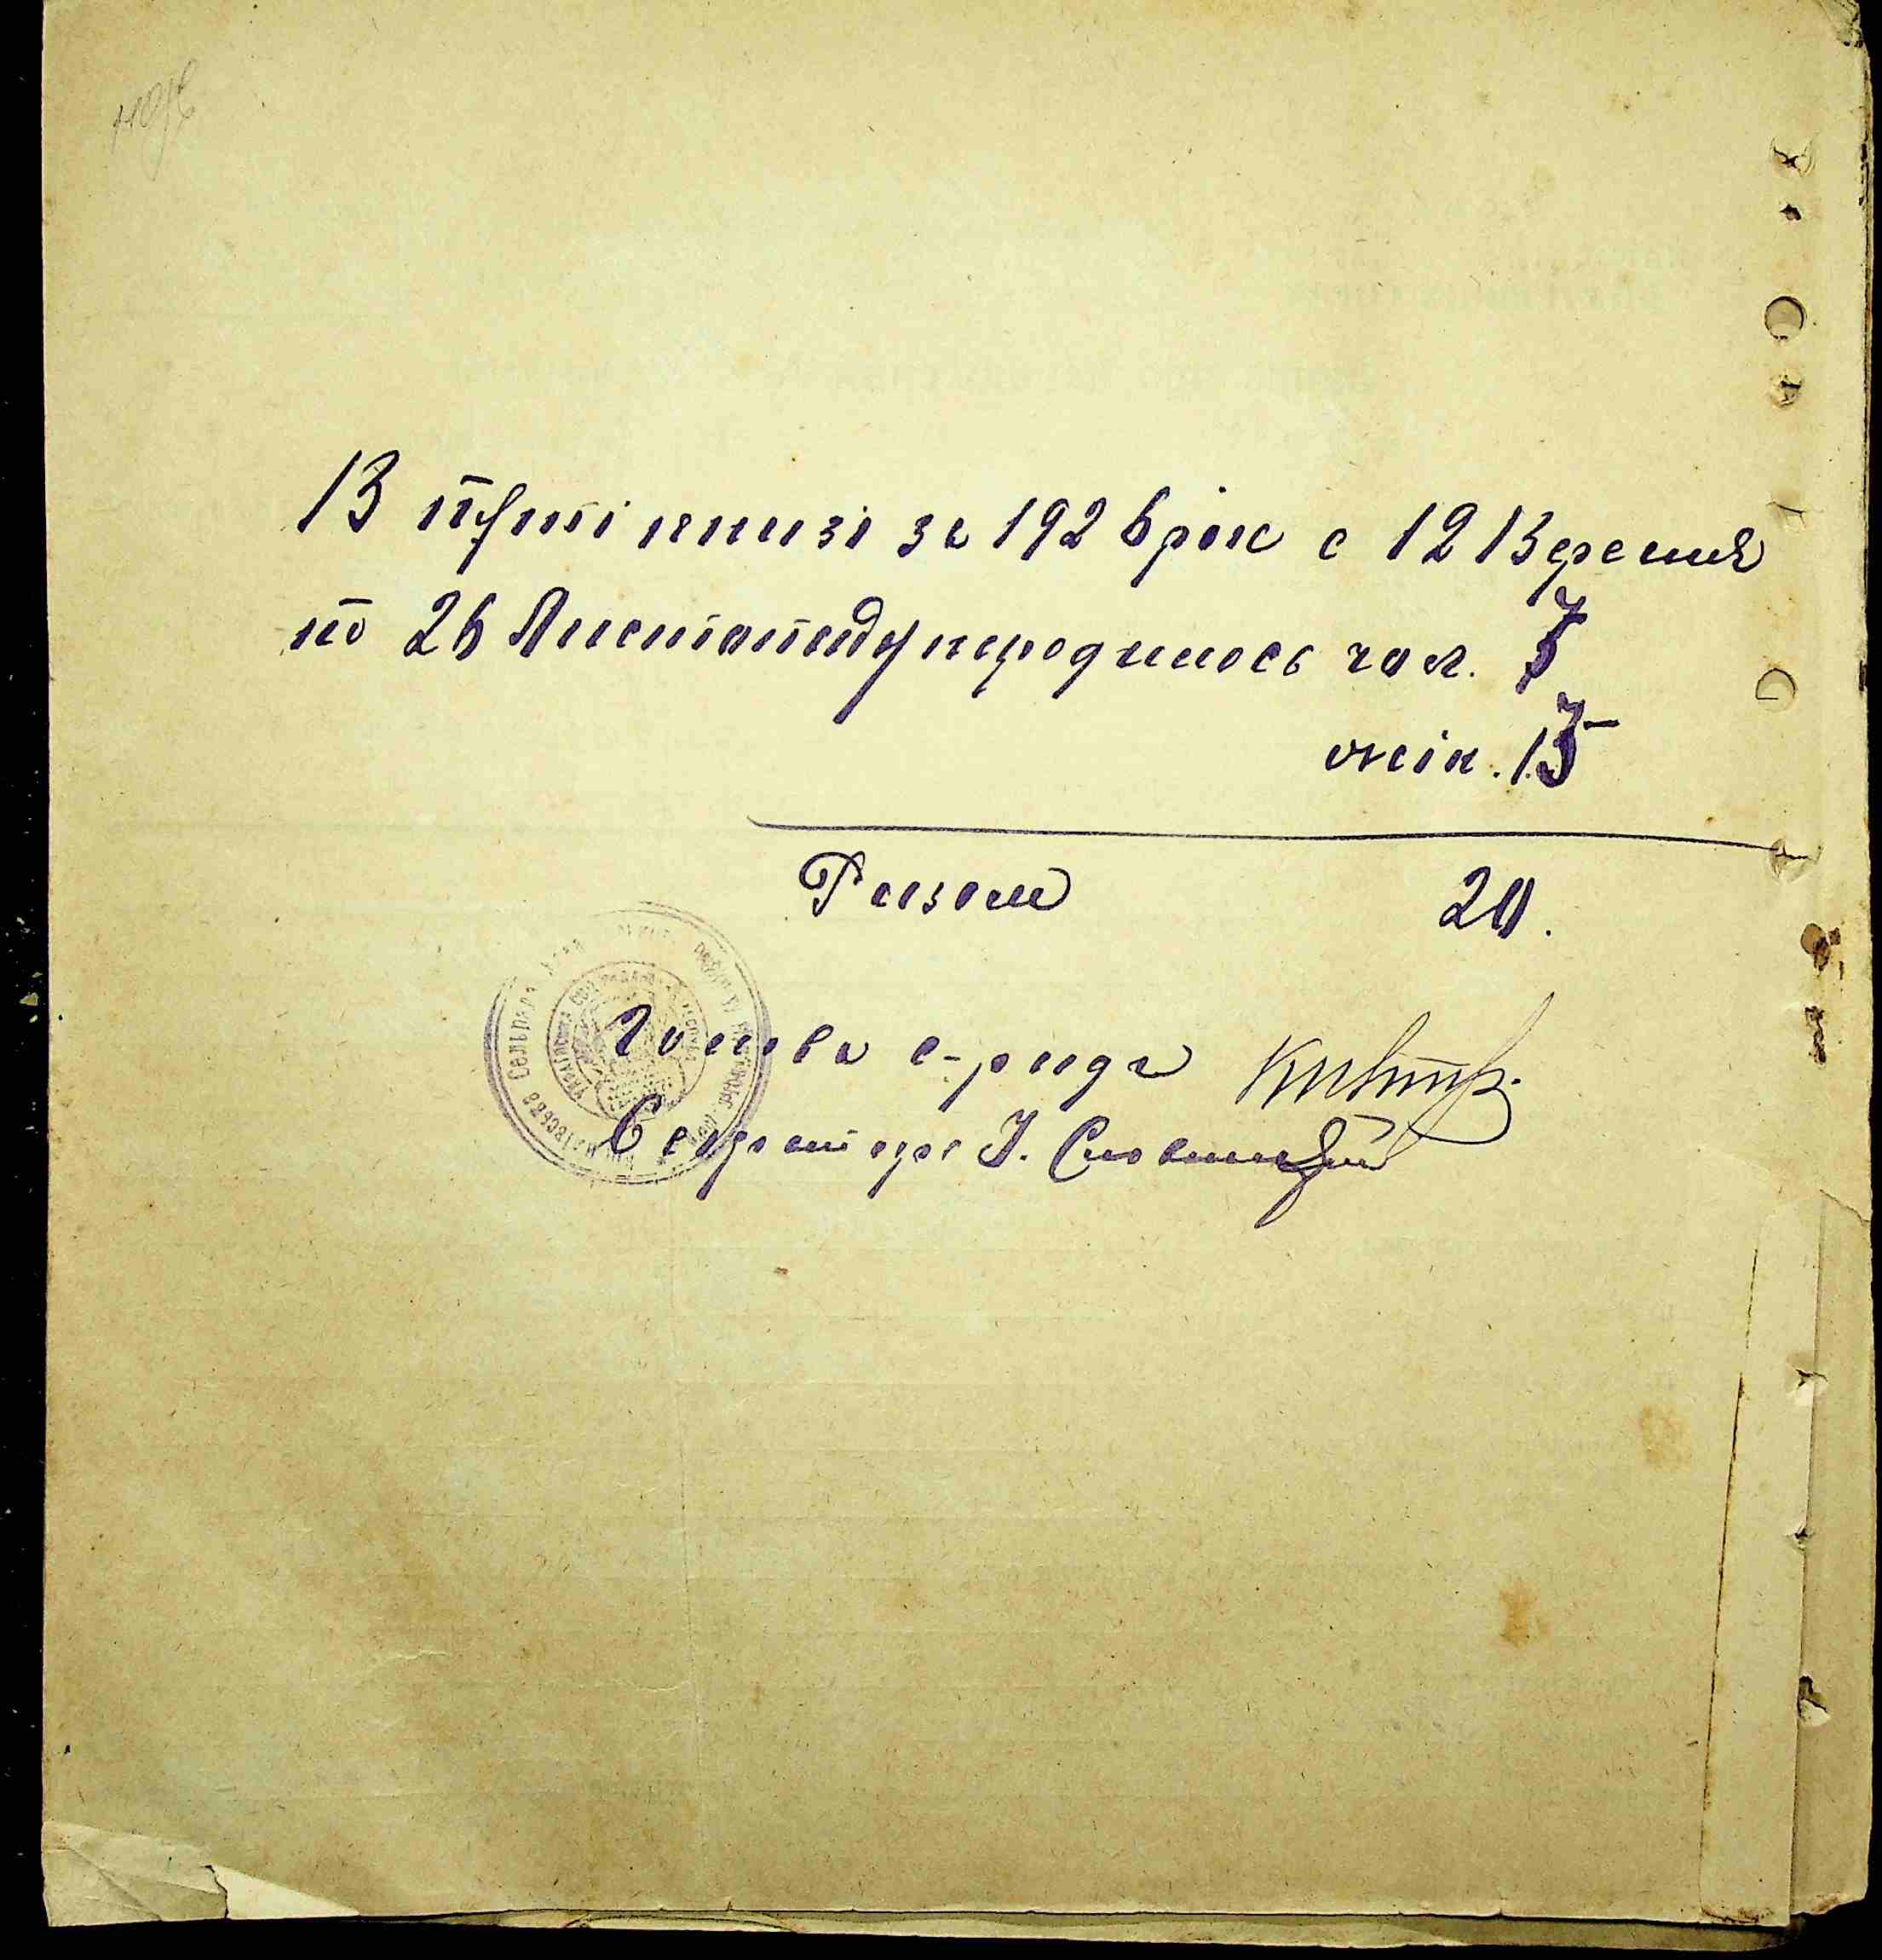 В ціїй книзі за 1926 рік с 12 Вересня
по 26 Листопаду народилось чол. 5
жін. 15
Разом 20.
Голова с-ради
Секретарь І.